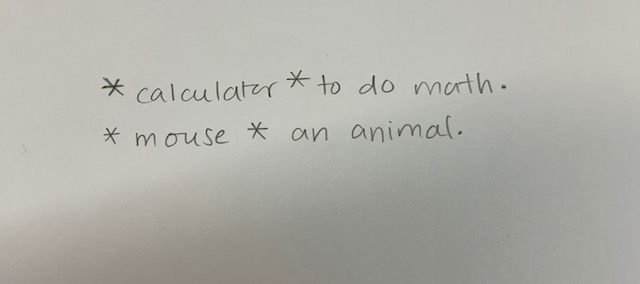 * calculator * to do math.
* mouse * an animal.